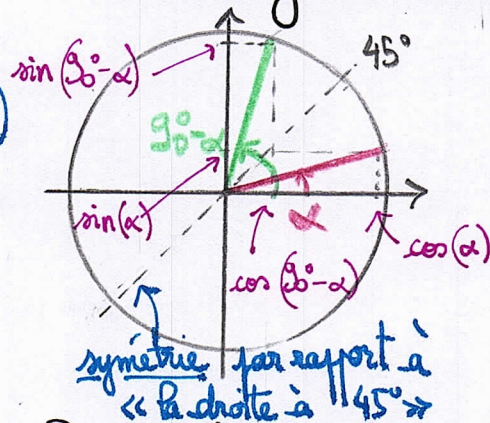 45°
sin(90°-α)
90°-α
sin(α)
α
cos(α)
cos(90°-α)
symétrie par rapport à
« la droite à 45° »